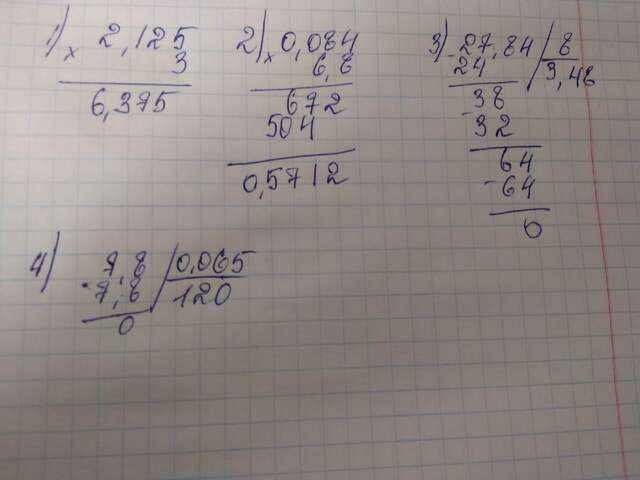 1) × 2,125
3
6,375
2) × 0,084
6,8
672
504
0,5712
3) - 27,84 / 8
24 3,48
- 38
32
64
- 64
0
4) 7,8 / 0,065
- 7,8 120
0